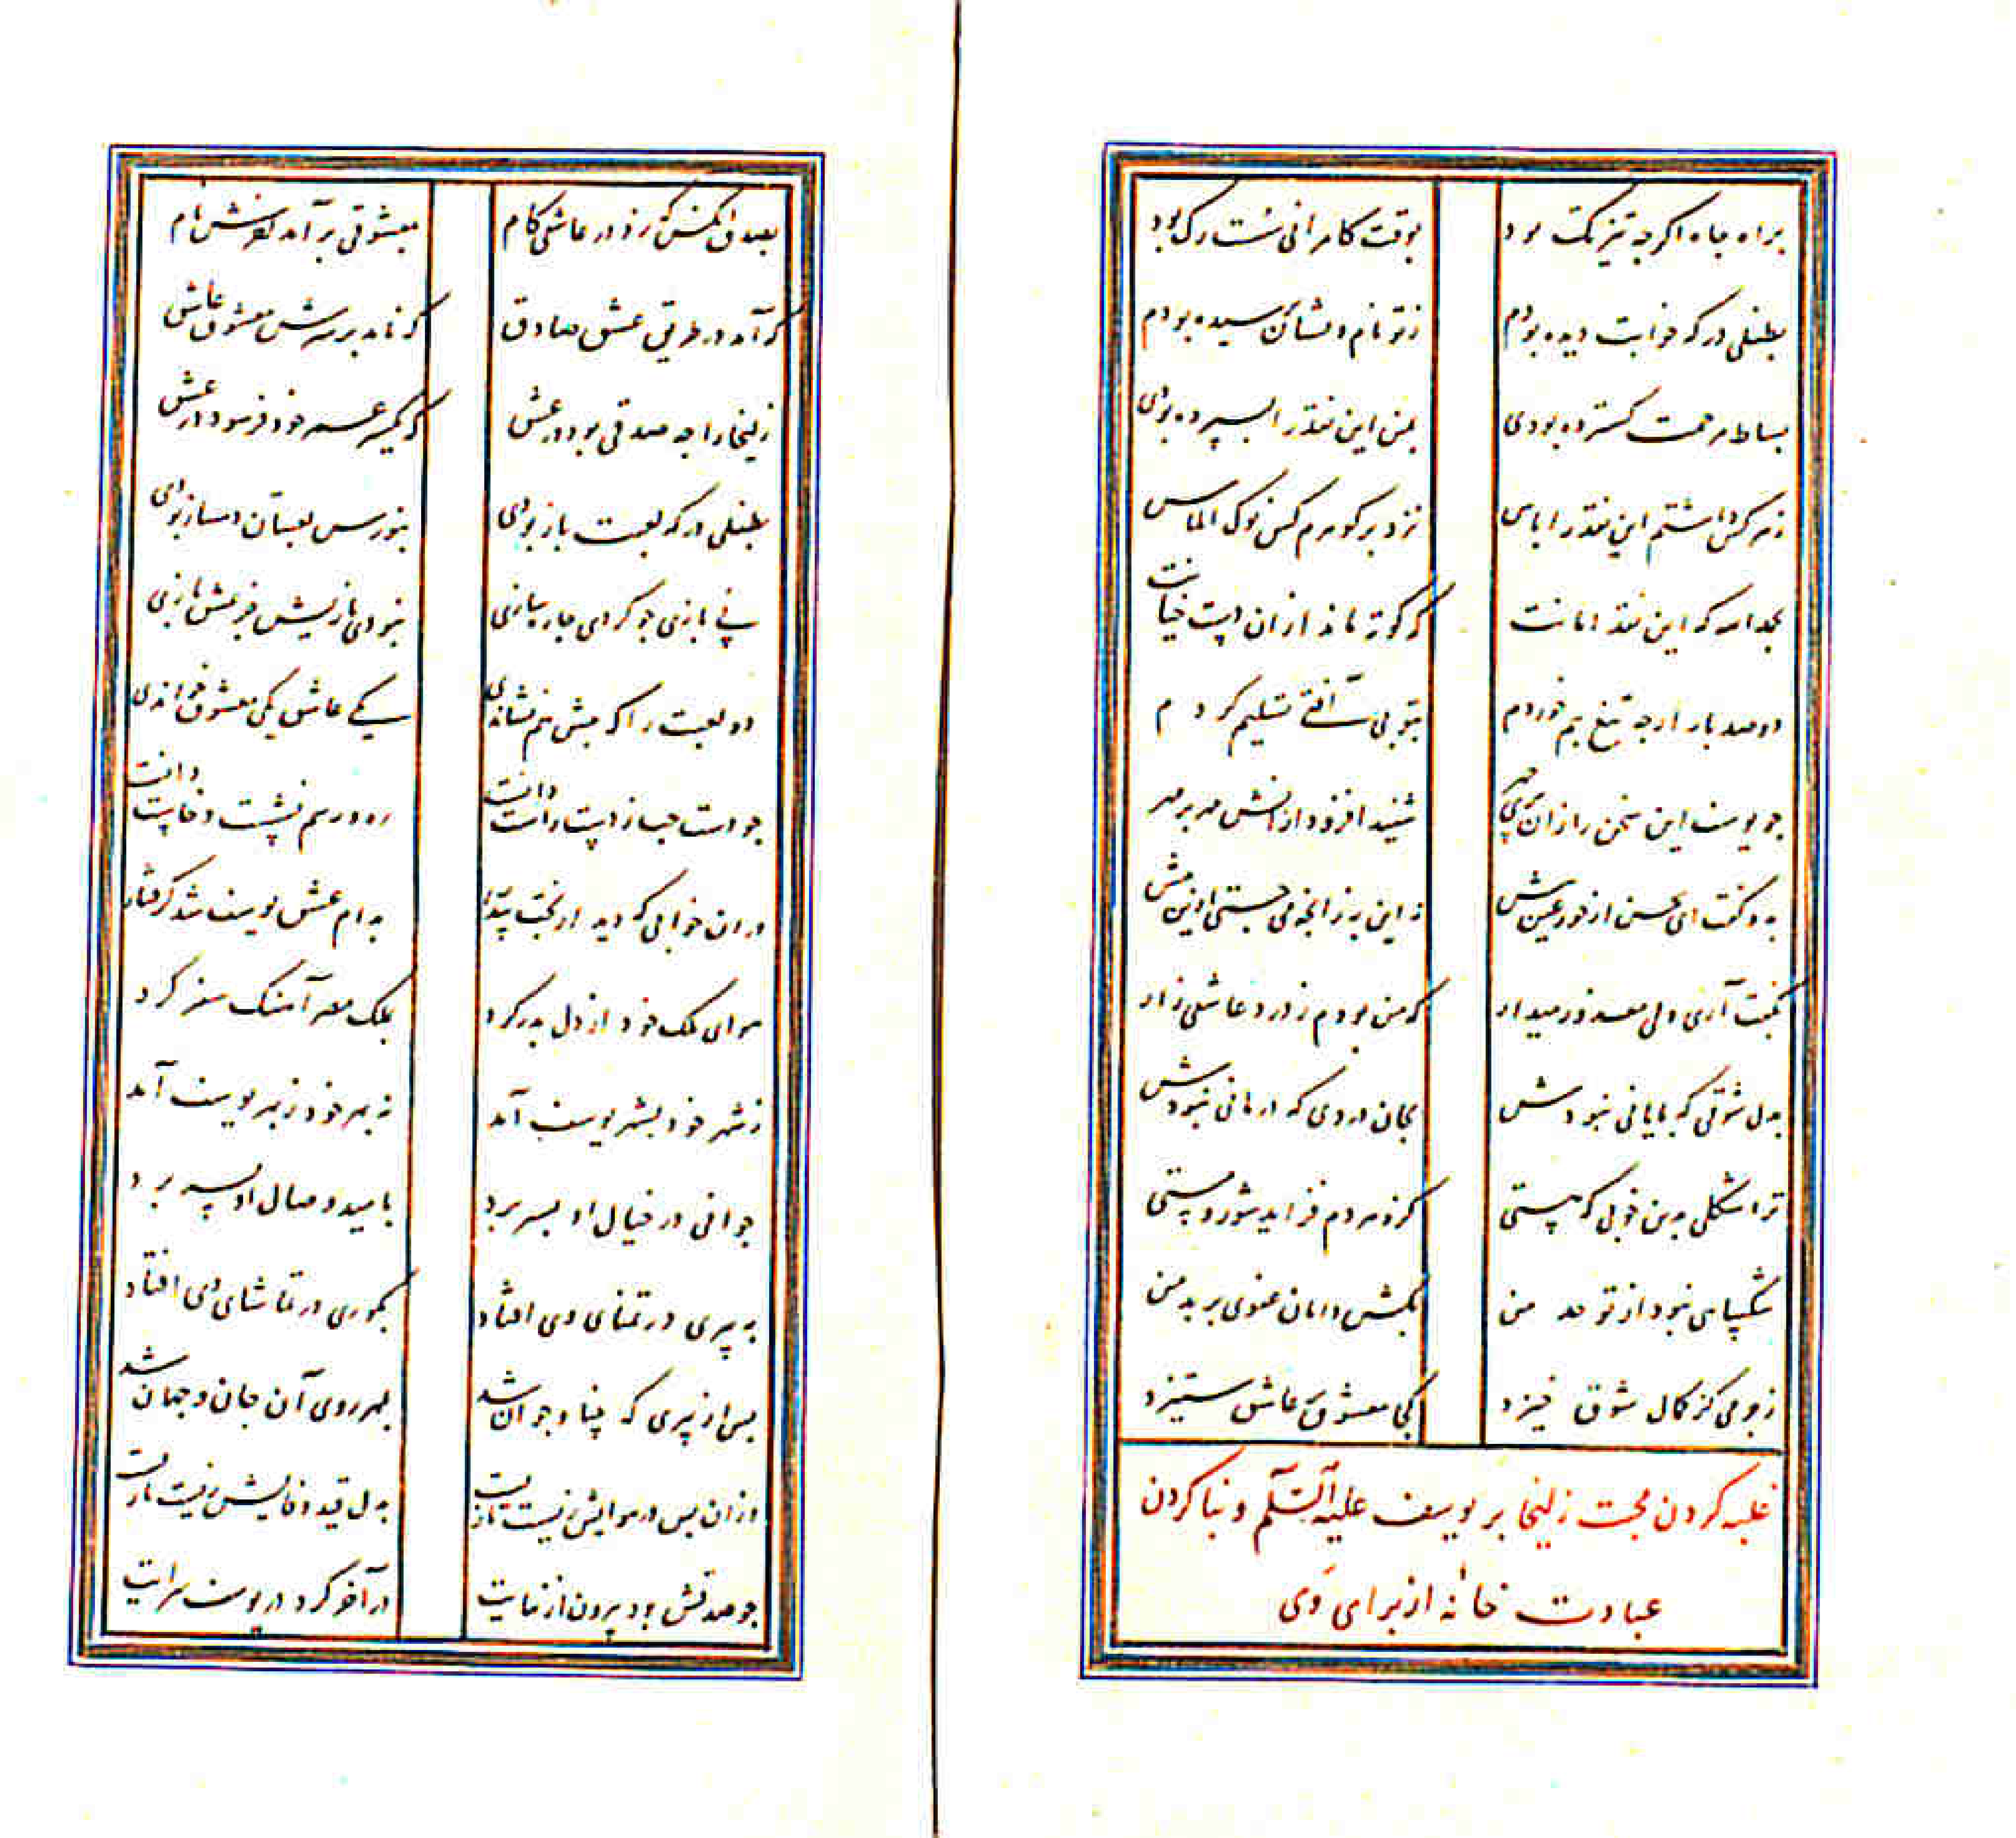 براه جاه اگرچه تیزتک بود بوقت کامرانی سست رگ بود
بطفلی در که خوابت دیده بودم ز تو نام و نشان پرسیده بودم
بساط مرحمت گسترده بودی بمن این نقد را بسپرده بودی
ز هر کس داشتم این نقد را پاس نزد بر گوهرم کس نوک الماس
بحمدالله که این نقد امانت که کوته ماند ازان دست خیانت
دو صد بار ارچه تیغ بیم خوردم بتو بی آفتی تسلیم کردم
چو یوسف این سخن را زان پری چهر شنید افزود ازانش مهر بر مهر
بدو گفت ای بحسن از حور عین بیش نه این به زانچه می جستی ازین پیش
بگفت آری ولی معذور میدار که من بودم ز درد عاشقی زار
بدل شوقی که پایانی نبودش بجان دردی که درمانی نبودش
ترا شکلی بدین خوبی که هستی کزو هر دم فزاید شور و مستی
شکیبایی نبود از تو حد من بکش دامان عفوی بر بد من
ز جرمی کز کمال شوق خیزد کجا معشوق با عاشق ستیزد
غلبه کردن محبت زلیخا بر یوسف علیه السلام و بنا کردن
عبادت خانه از برای وی
بصدق آنکس که زد در عاشقی گام بمعشوقی بر آمد آخرش نام
که آمد در طریق عشق صادق که نامد بر سرش معشوق عاشق
زلیخا را چه صدقی بود در عشق که یکسر عمر خود فرسود در عشق
بطفلی در که لعبت باز بودی بنورس لعبتان دمساز بودی
پی بازی چو کردی چاره سازی نبودی بازیش جز عشق بازی
دو لعبت را که پیش هم نشاندی یکی عاشق یکی معشوق خواندی
چو دست چپ ز دست راست دانست ره و رسم نشست و خاست دانست
دران خوابی که دید از بخت بیدار بدام عشق یوسف شد گرفتار
هوای ملک خود از دل بدر کرد بملک مصر آهنگ سفر کرد
ز شهر خود بشهر یوسف آمد نه بهر خود ز بهر یوسف آمد
جوانی در خیال او بسر برد بامید وصال او بسر برد
به پیری در تمنای وی افتاد بکوری در تماشای وی افتاد
پس از پیری که بینا و جوان شد بمهر روی آن جان و جهان شد
وزان پس در هوایش زیست تا زیست بدل قید وفایش زیست تا زیست
چو صدقش بود بیرون از نهایت در آخر کرد در یوسف سرایت